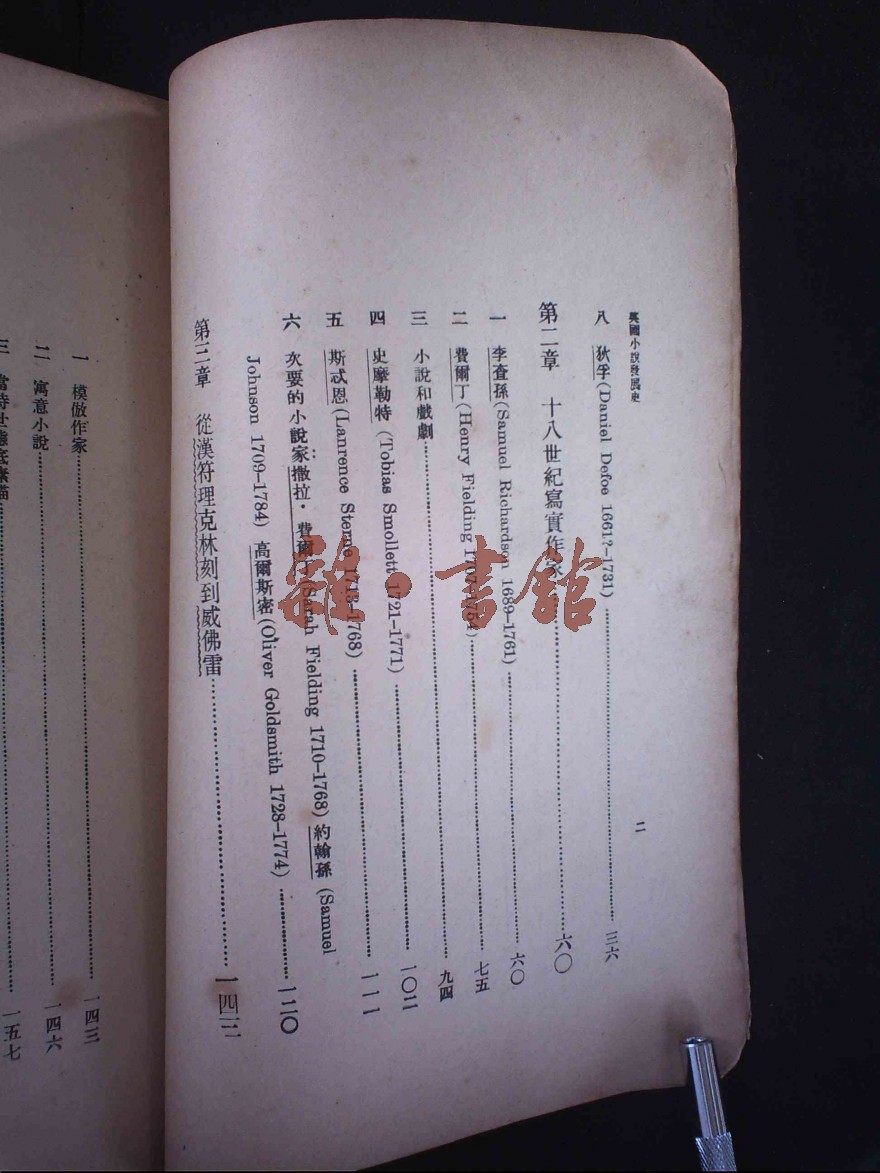 英國小說發展史
二
八 狄孚(Daniel Defoe 1661?–1731)……三六
第二章 十八世紀寫實作家……六〇
一 李查孫(Samuel Richardson 1689–1761)……六〇
二 費爾丁(Henry Fielding 1707–1754)……七五
三 小說和戲劇……九四
四 史摩勒特(Tobias Smollett 1721–1771)……一〇二
五 斯忒恩(Lanrence Sterne 1713–1768)……一一一
六 次要的小說家撒拉・費爾丁(Sarah Fielding 1710–1768)約翰孫(Samuel
Johnson 1709–1784)高爾斯密(Oliver Goldsmith 1728–1774)……一二〇
第三章 從漢符理克林刻到威佛雷……一四三
一 模倣作家……一四三
二 寓意小說……一四六
三 當時世態底素描……一五七
雜・書館